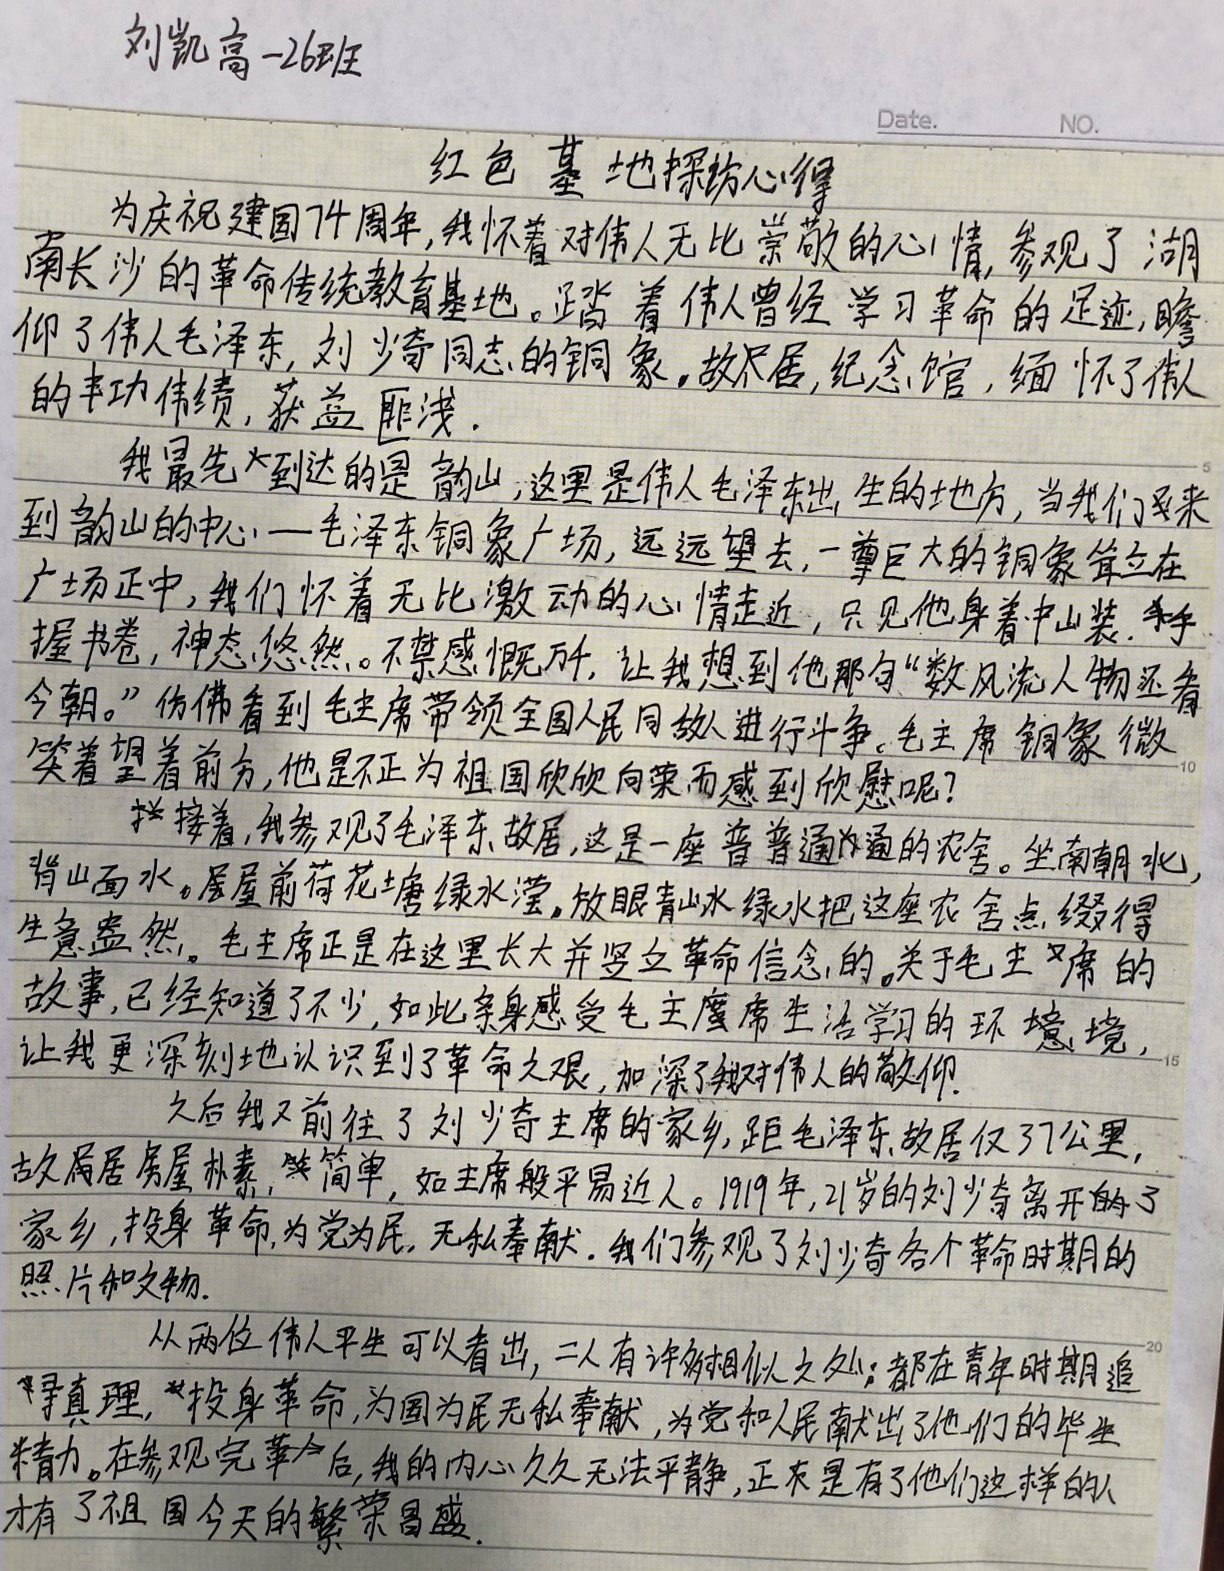 刘凯高一26班
Date. NO.
红色基地探访心得
为庆祝建国74周年,我怀着对伟人无比崇敬的心情,参观了湖
南长沙的革命传统教育基地。踏着伟人曾经学习革命的足迹,瞻
仰了伟人毛泽东,刘少奇同志的铜象。故居,纪念馆,缅怀了伟人
的丰功伟绩,获益匪浅.
5
我最先到达的是韵山,这里是伟人毛泽东出生的地方,当我们来
到韵山的中心—毛泽东铜象广场,远远望去,一尊巨大的铜象耸立在
广场正中,我们怀着无比激动的心情走近,只见他身着中山装.手
握书卷,神态悠然。不禁感慨万千,让我想到他那句“数风流人物还看
今朝。”仿佛看到毛主席带领全国人民同敌人进行斗争.毛主席铜象微
笑着望着前方,他是不正为祖国欣欣向荣而感到欣慰呢?
10
接着,我参观了毛泽东故居,这是一座普普通通的农舍。坐南朝北,
背山面水。屋前荷花塘绿水滢。放眼青山水绿水把这座农舍点缀得
生意盎然。毛主席正是在这里长大并竖立革命信念的。关于毛主席的
故事,已经知道了不少,如此亲身感受毛主席生活学习的环境,
让我更深刻地认识到了革命之艰,加深了我对伟人的敬仰.
15
之后我又前往了刘少奇主席的家乡,距毛泽东故居仅37公里,
故居房屋朴素,简单,如主席般平易近人。1919年,21岁的刘少奇离开了
家乡,投身革命,为党为民,无私奉献.我们参观了刘少奇各个革命时期的
照片和文物.
20
从两位伟人平生可以看出,二人有许多相似之处;都在青年时期追
寻真理,投身革命,为国为民无私奉献,为党和人民献出了他们的毕生
精力。在参观完革命后,我的内心久久无法平静,正是有了他们这样的人
才有了祖国今天的繁荣昌盛.